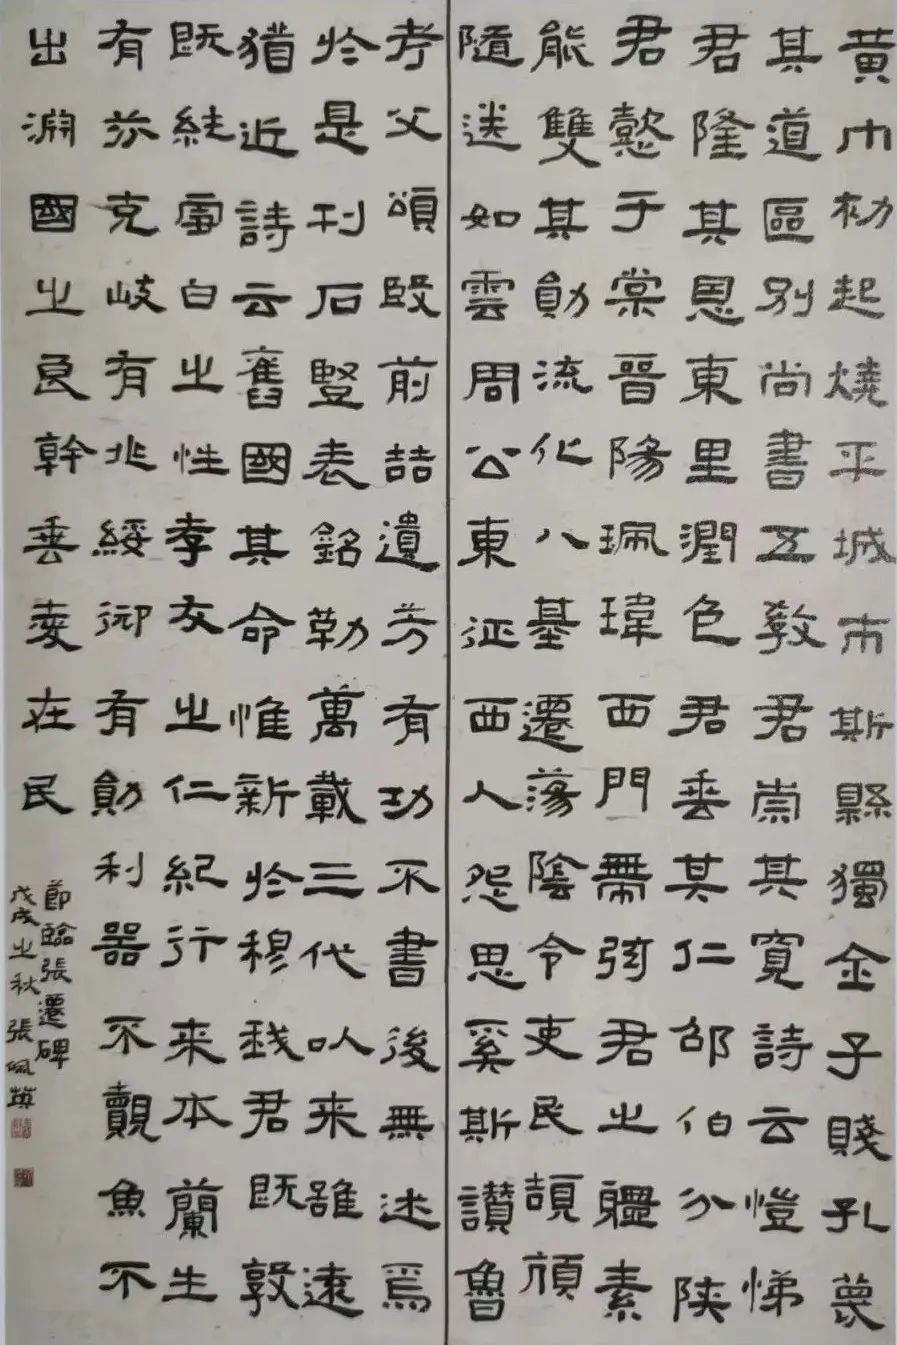 黄巾初起燒平城市斯縣獨全子賤孔蔑
其道區別尚書五教君崇其寬詩云愷悌
君隆其恩東里潤色君垂其仁邵伯分陝
君懿于棠晉陽珮瑋西門帶弦君之軆素
能雙其勛流化八基遷蕩陰令吏民頡頏
隨送如雲周公東征西人怨思奚斯讃魯
考父頌殷前喆遺芳有功不書後無述焉
於是刊石豎表銘勒萬載三代以来雖遠
猶近詩云舊國其命惟新於穆我君既敦
既純雪白之性孝友之仁紀行来本蘭生
有芬克岐有兆綏御有勛利器不覿魚不
出渊國之良幹垂愛在民
節臨張遷碑
戊戌之秋 張佩英